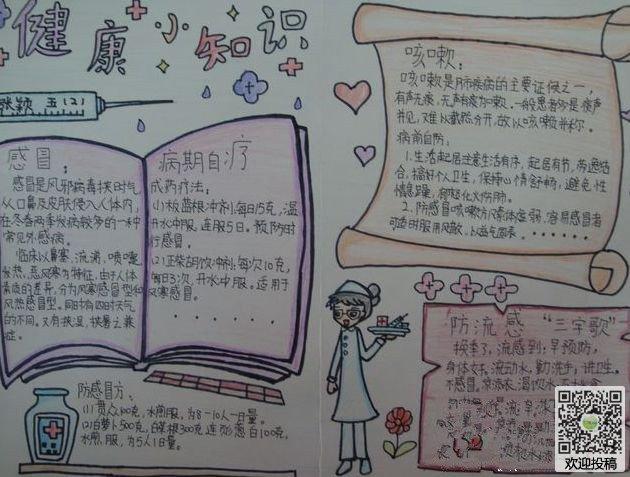 健康小知识
张颖 五(2)
感冒:
感冒是风邪病毒挟时气
从口鼻及皮肤侵入人体内,
在冬春两季发病较多的一种
常见外感病。
临床以鼻塞、流涕、喷嚏
发热、恶风寒为特征,由于人体
素质的差异,分为风寒感冒型和
风热感冒型。同时有四时天气
的不同。又有挟湿、挟暑之兼
症。
病期自疗
成药疗法:
(1)板蓝根冲剂:每日15克,温
开水冲服。连服5日。预防时
行感冒。
(2)正柴胡饮冲剂:每次10克,
每日3次,开水冲服。适用于
风寒感冒。
......
防感冒方:
(1)贯众100克,水煎服,为8-10人一日量。
(2)白萝卜500克,白菜根300克,连须葱白100克,
水煎服,为5人1日量。
咳嗽:
咳嗽是肺疾病的主要证候之一,
有声无痰,无声有痰为嗽。一般患者多是痰声
并见,又难以截然分开,故以咳嗽并称。
病前自防:
1.生活起居注意生活有序,起居有节,劳逸结
合,搞好个人卫生,保持心情舒畅,避免性
情急躁,郁怒化火伤肺。
2.防感冒咳嗽方:素体虚弱,容易感冒者
可适时服用 ......
防流感“三字歌”
换季了,流感到:早预防,
身体好,流动水,勤洗手,讲卫生。
不感冒,
欢迎投稿